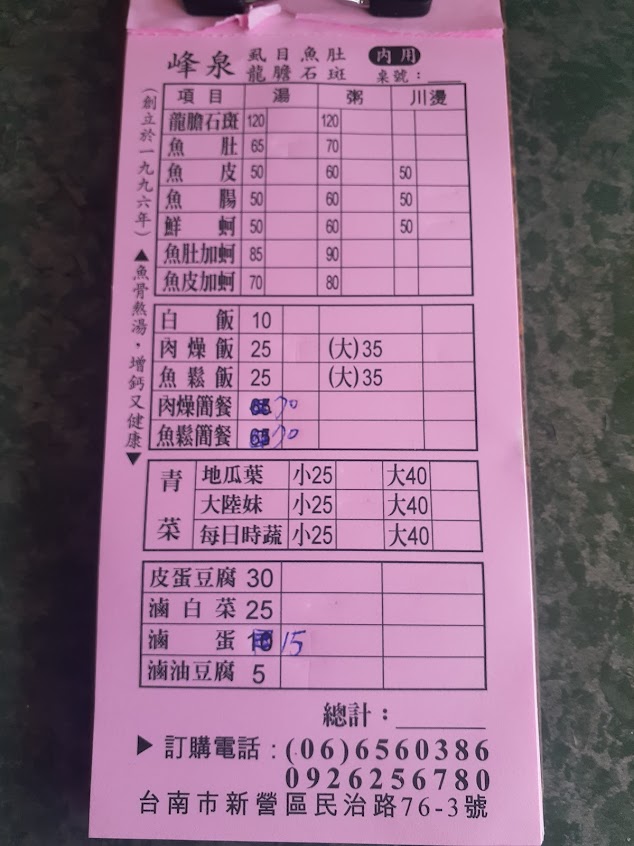 峰泉 虱目魚肚 龍膽石斑 內用 桌號：
(創立於一九九六年) ▲魚骨熬湯，增鈣又健康▼
項目 湯 粥 川燙
龍膽石斑 120 120
魚肚 65 70
魚皮 50 60 50
魚腸 50 60 50
鮮蚵 50 60 50
魚肚加蚵 85 90
魚皮加蚵 70 80
白飯 10
肉燥飯 25 (大)35
魚鬆飯 25 (大)35
肉燥簡餐 70
魚鬆簡餐 70
青菜
地瓜葉 小25 大40
大陸妹 小25 大40
每日時蔬 小25 大40
皮蛋豆腐 30
滷白菜 25
滷蛋 10 15
滷油豆腐 5
總計：
▶訂購電話：(06)6560386
0926256780
台南市新營區民治路76-3號